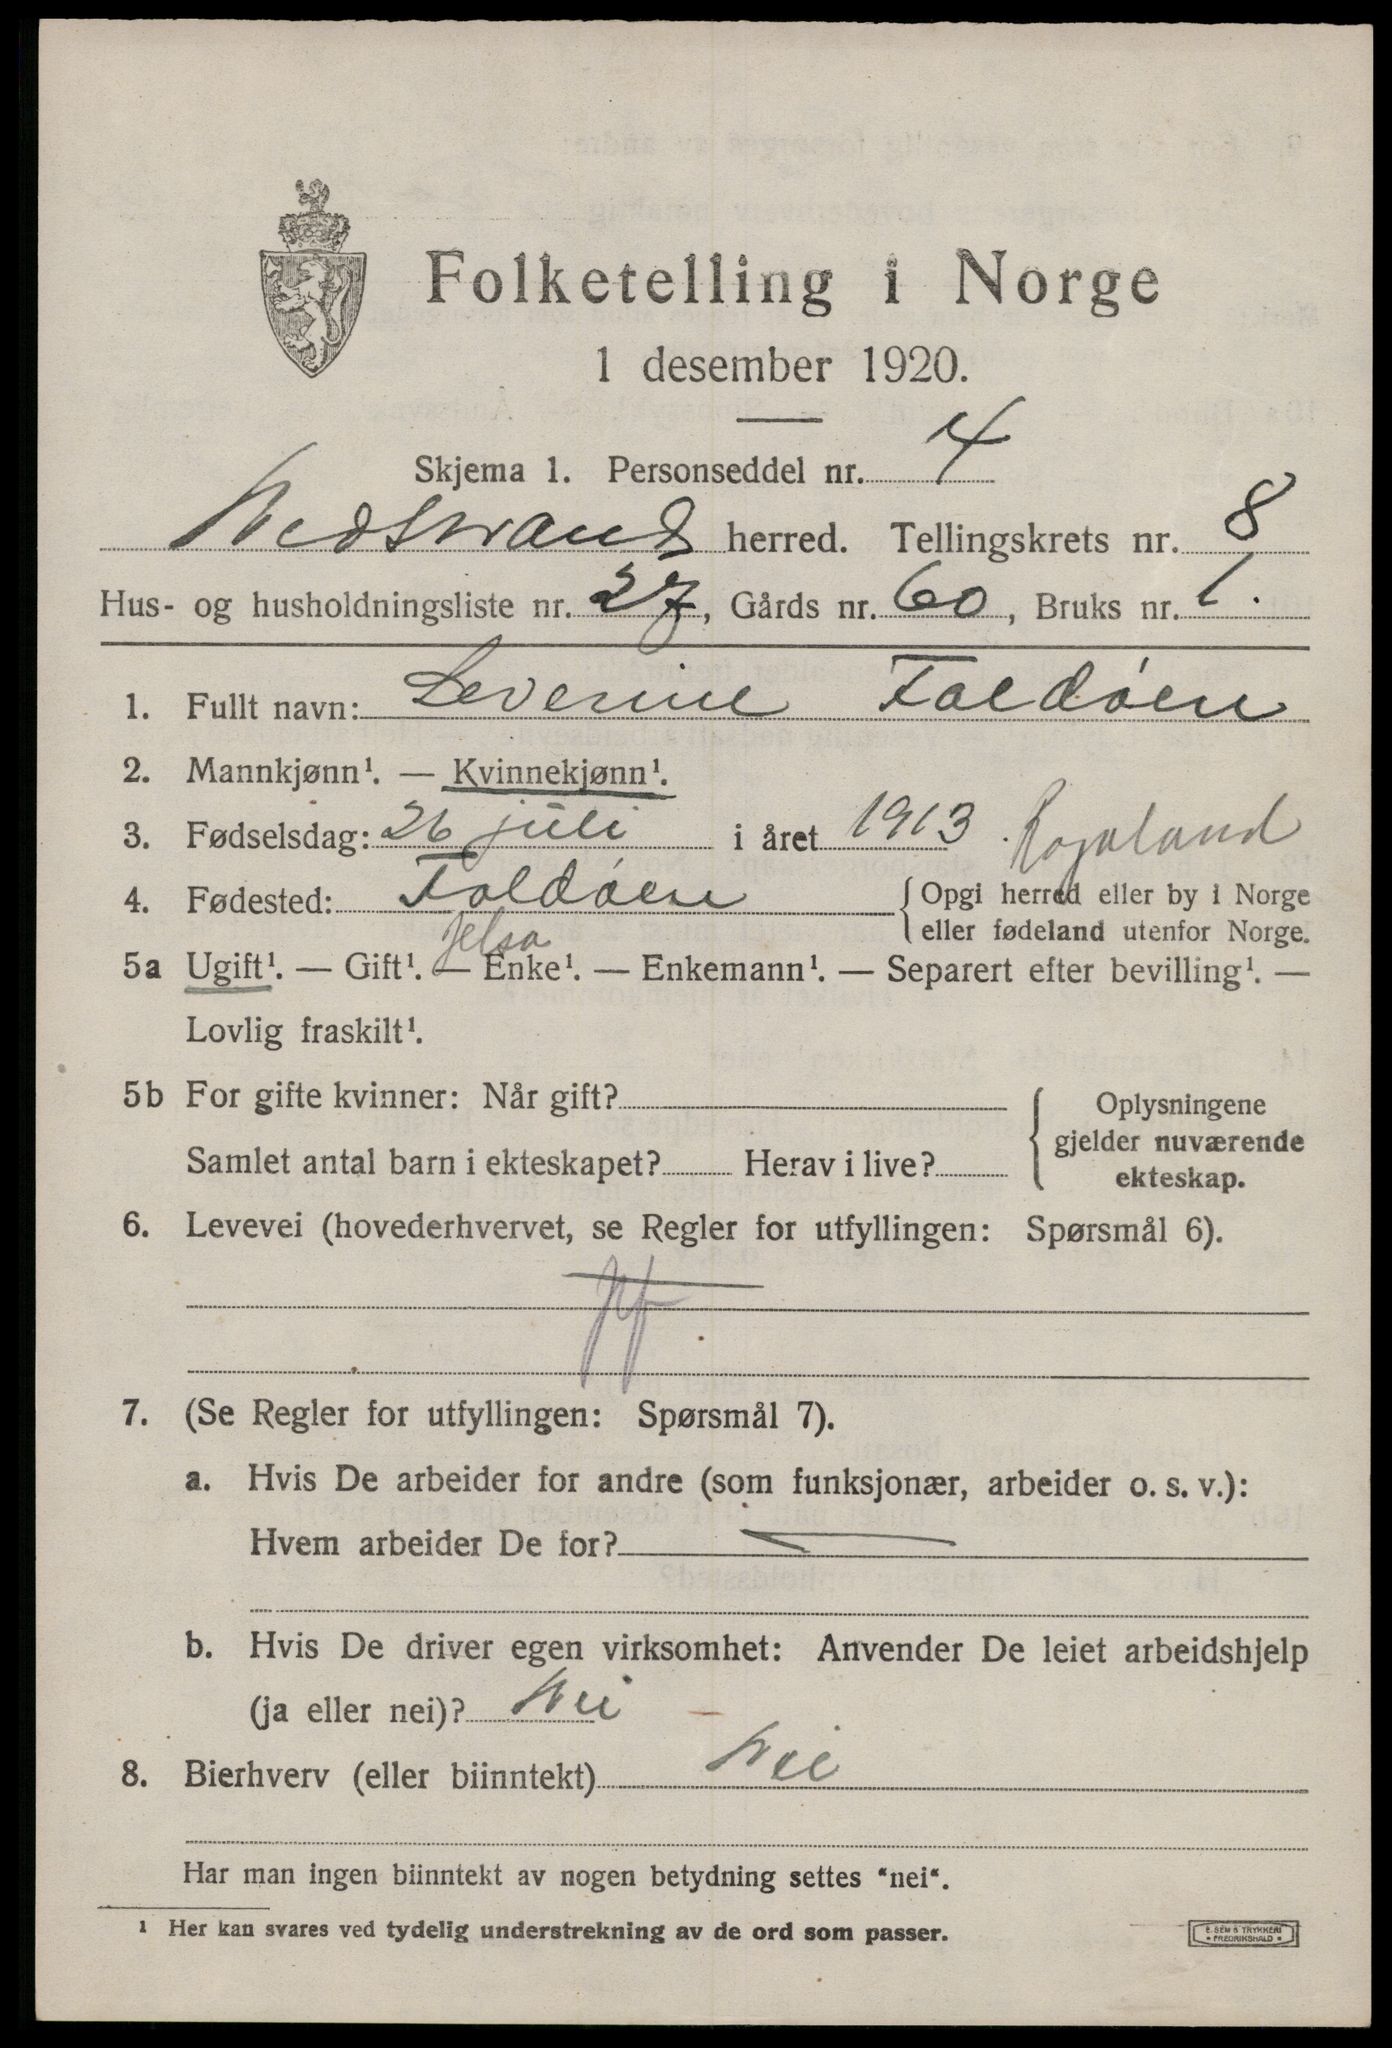 Folketelling i Norge
1 desember 1920.
Skjema 1. Personseddel nr. 4
Nedstrand herred. Tellingskrets nr. 8
Hus- og husholdningsliste nr. 27, Gårds nr. 60, Bruks nr. 1.
1. Fullt navn: Severine Foldøen
2. Mannkjønn¹. — Kvinnekjønn¹.
3. Fødselsdag: 26 juli i året 1913. Rogaland
4. Fødested: Foldøen { Opgi herred eller by i Norge
eller fødeland utenfor Norge.
Jelsa
5a Ugift¹. — Gift¹. — Enke¹. — Enkemann¹. — Separert efter bevilling¹. —
Lovlig fraskilt¹.
5b For gifte kvinner: Når gift?
Samlet antal barn i ekteskapet? Herav i live?
{ Oplysningene
gjelder nuværende
ekteskap.
6. Levevei (hovederhvervet, se Regler for utfyllingen: Spørsmål 6).
7. (Se Regler for utfyllingen: Spørsmål 7).
a. Hvis De arbeider for andre (som funksjonær, arbeider o. s. v.):
Hvem arbeider De for?
b. Hvis De driver egen virksomhet: Anvender De leiet arbeidshjelp
(ja eller nei)? Nei
8. Bierhverv (eller biinntekt) Nei
Har man ingen biinntekt av nogen betydning settes "nei".
¹ Her kan svares ved tydelig understrekning av de ord som passer.
E. SEM'S TRYKKERI
• FREDRIKSHALD •